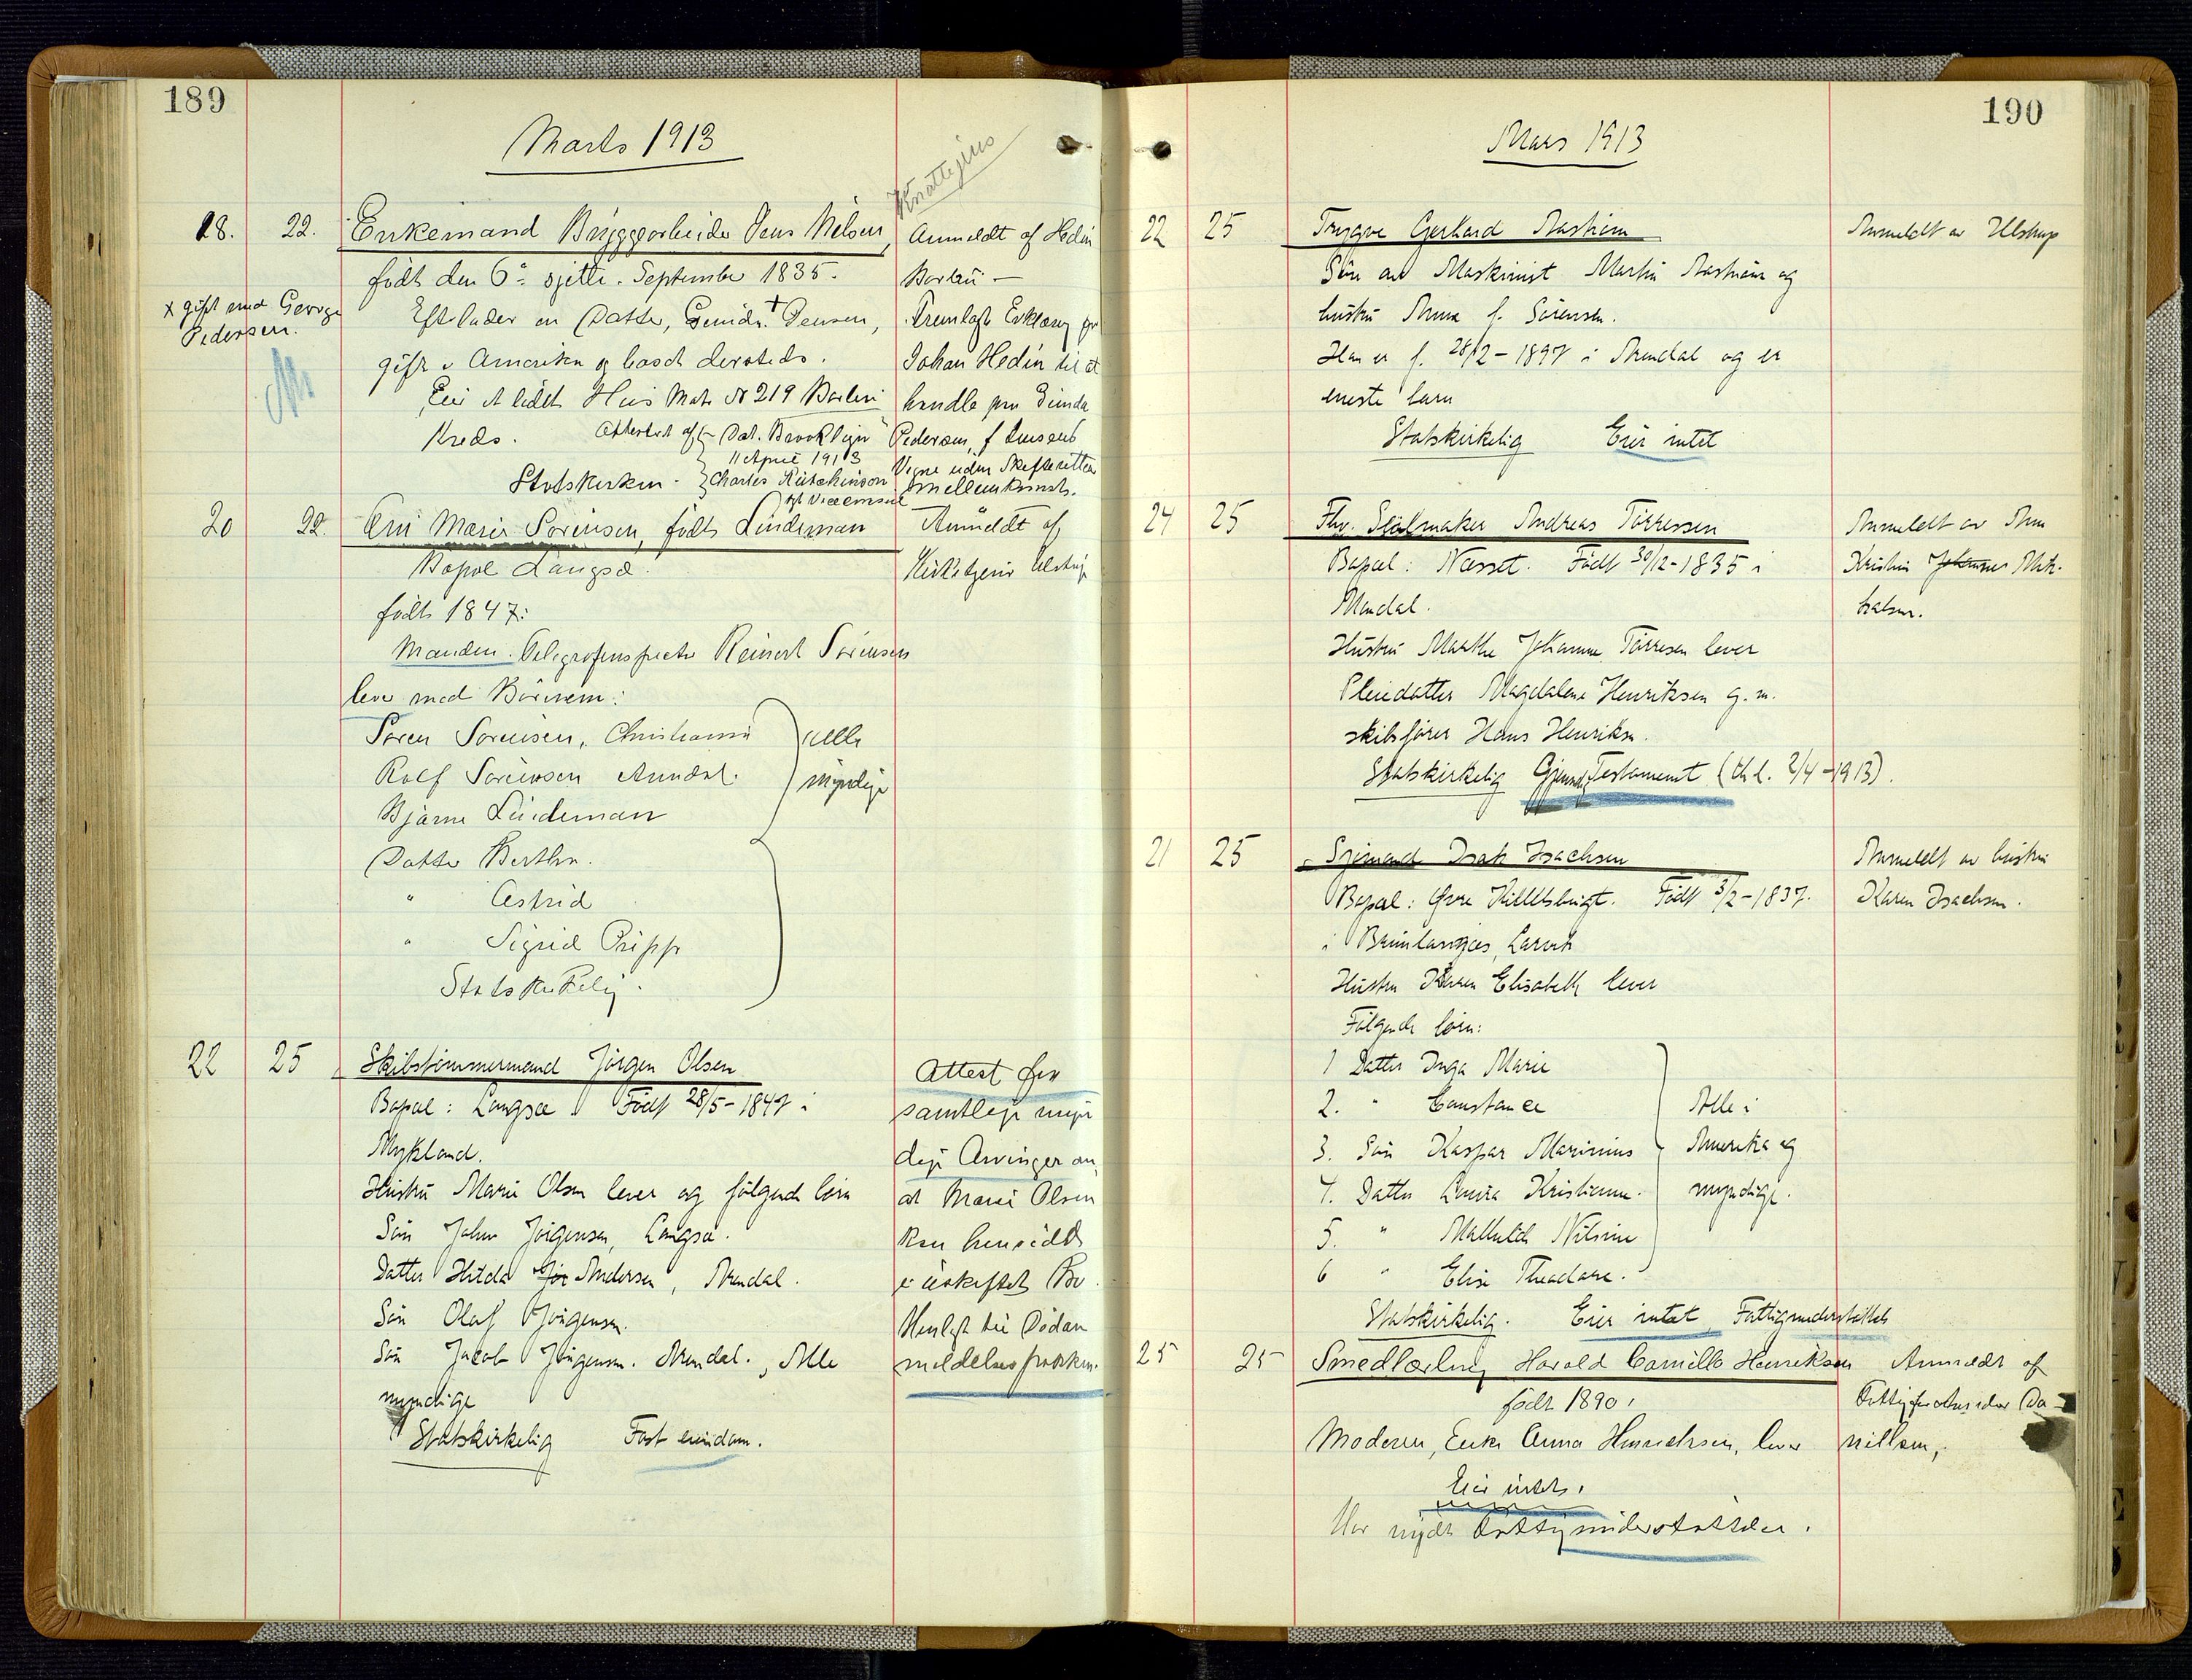 189
Marts 1913
18. 22. Enkemand Bryggearbeider Jens Nilsen,
født den 6te sjette September 1835.
x gift med George
Pedersen.
Efterlader en Datter, Gunda + Jensen,
gift i Amerika og bosat dersteds.
Eier et lidet Hus Mat. Nr 219 Barbu
Kreds. Attesteret af Dat. Brooklyn
11 April 1913
Statskirken. Charles Hutchinson
Vicekonsul
Anmeldt af Hedin
Barbu —
Fremlagt Erklæring for
Johan Hedin til at
handle paa Gunda
Pedersen, f Jensens
Vegne uden Skifterettens
mellemkomst.
20 22. Ani Marie Sørensen, født Lindeman
Bopæl Langsæ.
født 1847:
Manden Telegrafinspektør Reinert Sørensen
lever med Børnene:
Søren Sørensen, Christiania
Rolf Sørensen Arendal.
Bjarne Lindeman
Datter Berthe.
" Astrid
" Sigrid Pripp
alle
myndige
Statskirkelig.
Anmeldt af
Kirketjener Ulstrup
22 25 Skibstømmermand Jørgen Olsen
Bopæl: Langsæ. Født 28/5-1847 i
Mykland.
Hustru Marie Olsen lever og følgende børn
Søn John Jørgensen, Langsæ.
Datter Hilda Jør Andersen, Arendal.
Søn Olaf Jørgensen.
Søn Jacob Jørgensen. Arendal., Alle
myndige
Statskirkelig Fast eiendom.
Attest fra
samtlige myn
dige Arvinger om,
at Marie Olsen
kan hensidde
i uskiftet Bo.
Henlagt til Dødan
meldelsesprotokoll.
190
Mars 1913
22 25 Trygve Gerhard Aastrøm
Søn av Maskinist Martin Aastrøm og
hustru Anna f. Sørensen.
Han er f. 28/2-1897 i Arendal og er
eneste barn
Statskirkelig Eier intet
Anmeldt av Ulstrup
24 25 Fhv. Seilmaker Andreas Tørressen
Bopæl: Næsset. Født 30/12-1835 i
Mandal.
Hustru Marthe Johanne Tørresen lever
Pleiedatter Magdalene Henriksen g.m.
skibsfører Hans Henriksen.
Statskirkelig Gjensidig Testament (thl. 2/4-1913).
Anmeldt av
Kristine Johannes
21 25 Sjømand Isak Isachsen
Bopæl: Øvre Født 3/2-1837.
i Brunlanæs, Larvik
Hustru Karen Elisabeth lever
Følgende børn:
1 Datter Inga Marie
2. " Constance
3. Søn Kaspar Marinius
4. Datter Laura Kristianne.
5. " Mathilde Nilsine
6 " Elise Theodare.
Alle i
Amerika og
myndige.
Statskirkelig. Eier intet Fattigunderstøttet
Anmeldt av hustru
Karen Isachsen.
25 25 Smedlærling Harald Camillo Henriksen
født 1890.
Moderen, Enke Anna Henrichsen, lever
Eier intet.
Har nydt Fattigunderstøttelse.
Anmeldt af
Fattigforstander Da-
nielsen,